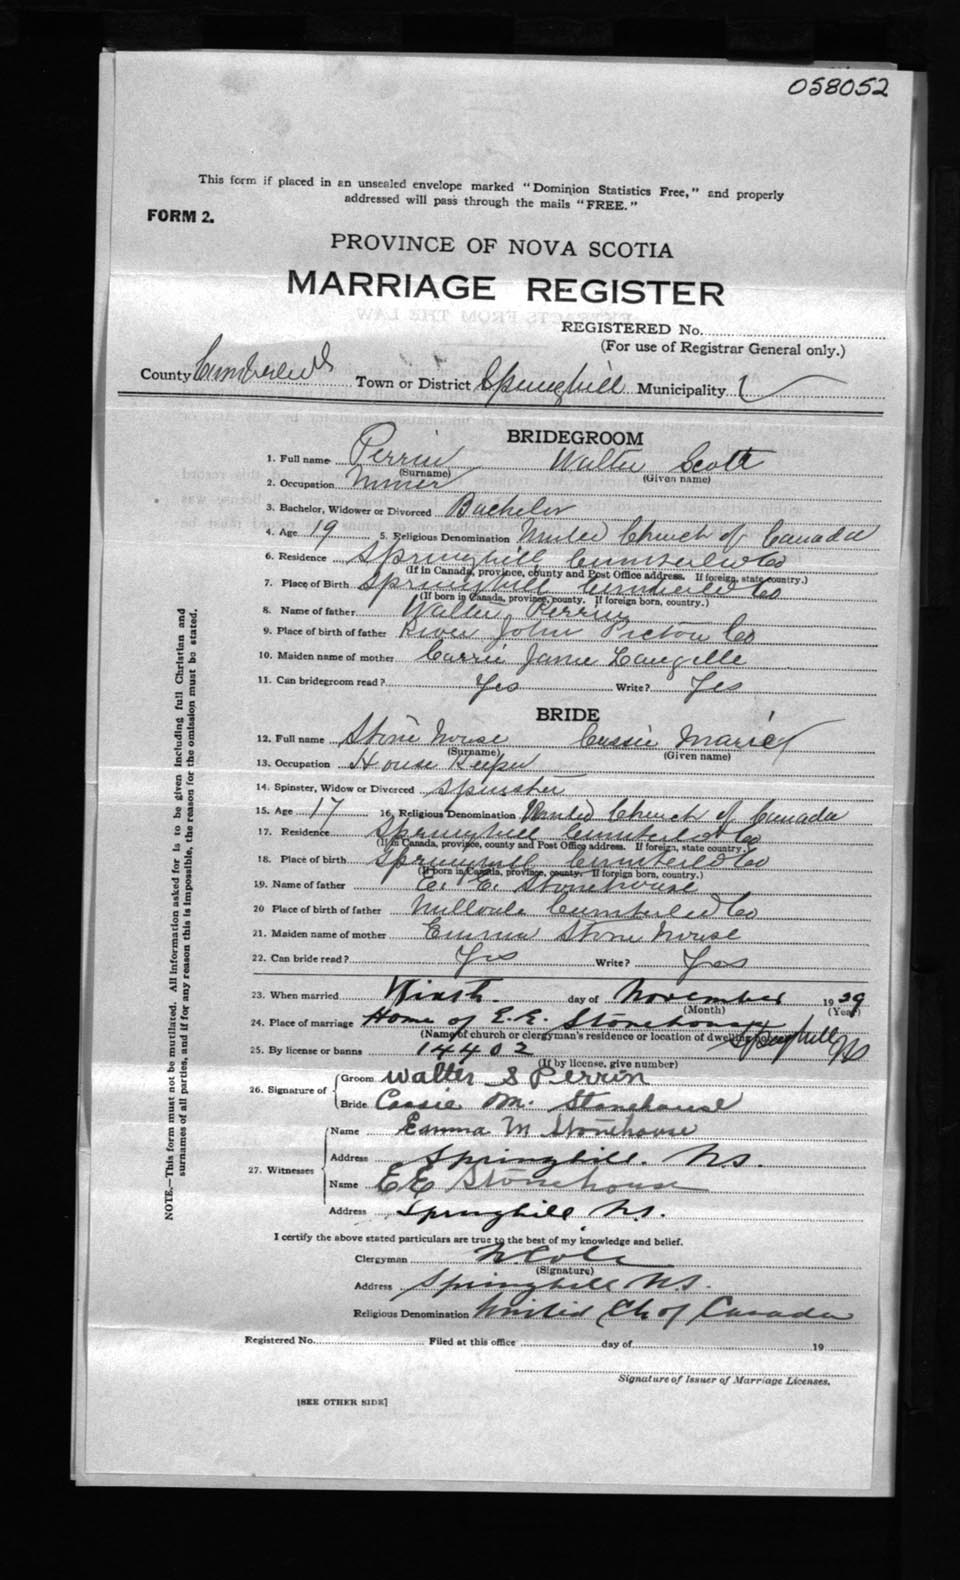 058052
This form if placed in an unsealed envelope marked "Dominion Statistics Free," and properly
addressed will pass through the mails "FREE."
FORM 2.
PROVINCE OF NOVA SCOTIA
MARRIAGE REGISTER
REGISTERED No.
(For use of Registrar General only.)
County Cumberland Town or District Springhill Municipality
BRIDEGROOM
1. Full name Perrin Walter Scott
(Surname) (Given name)
2. Occupation Miner
3. Bachelor, Widower or Divorced Bachelor
4. Age 19 5. Religious Denomination United Church of Canada
6. Residence Springhill Cumberled Co
(If in Canada, province, county and Post Office address. If foreign, state country.)
7. Place of Birth Springhill Cumberled Co
(If born in Canada, province, county. If foreign born, country.)
8. Name of father Walter Perrin
9. Place of birth of father River John Pictou Co
10. Maiden name of mother Carrie Jane Langille
11. Can bridegroom read? Yes Write? Yes
BRIDE
12. Full name Stone house Cassie Marie
(Surname) (Given name)
13. Occupation House Keeper
14. Spinster, Widow or Divorced Spinster
15. Age 17 16. Religious Denomination United Church of Canada
17. Residence Springhill Cumberled Co
(If in Canada, province, county and Post Office address. If foreign, state country.)
18. Place of birth Springhill Cumberled Co
(If born in Canada, province, county. If foreign born, country.)
19. Name of father E. E. Stonehouse
20 Place of birth of father Millvale Cumberled Co
21. Maiden name of mother Emma Stone house
22. Can bride read? Yes Write? Yes
23. When married Ninth day of November 1929
(Month) (Year)
24. Place of marriage Home of E. E. Stonehouse Springhill NS
(Name of church or clergyman's residence or location of dwelling house)
25. By license or banns 14402
(If by license, give number)
26. Signature of Groom Walter S Perrin
Bride Cassie M. Stonehouse
27. Witnesses Name Emma M Stonehouse
Address Springhill. N.S.
Name E E Stonehouse
Address Springhill N.S.
I certify the above stated particulars are true to the best of my knowledge and belief.
Clergyman Cole
(Signature)
Address Springhill N.S.
Religious Denomination United Ch of Canada
Registered No. Filed at this office day of 19
Signature of Issuer of Marriage Licenses.
[SEE OTHER SIDE]
NOTE.—This form must not be mutilated. All information asked for is to be given including full Christian and
surnames of all parties, and if for any reason this is impossible, the reason for the omission must be stated.